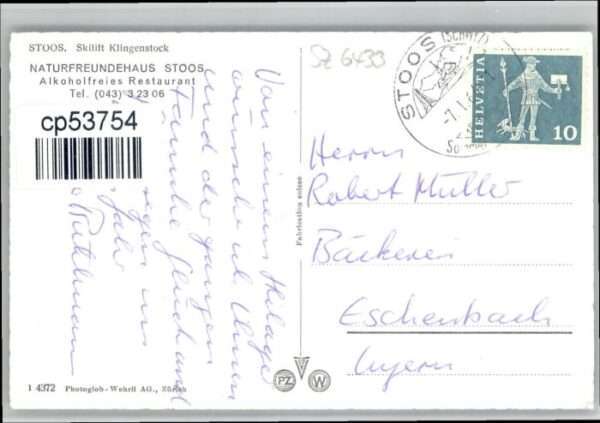 STOOS. Skilift Klingenstock
NATURFREUNDEHAUS STOOS
Alkoholfreies Restaurant
Tel. (043) 3 23 06
cp53754
Sz 6433
STOOS (SCHWYZ)
HELVETIA
10
Von einem
wünsche ich Ihnen
und der ganzen
Familie Glück und
Segen ins
Jahr
Fabrication suisse
Herrn
Robert Müller
Bäckerei
Eschenbach
Luzern
1 4372 Photoglob-Wehrli AG., Zürich
PZ W